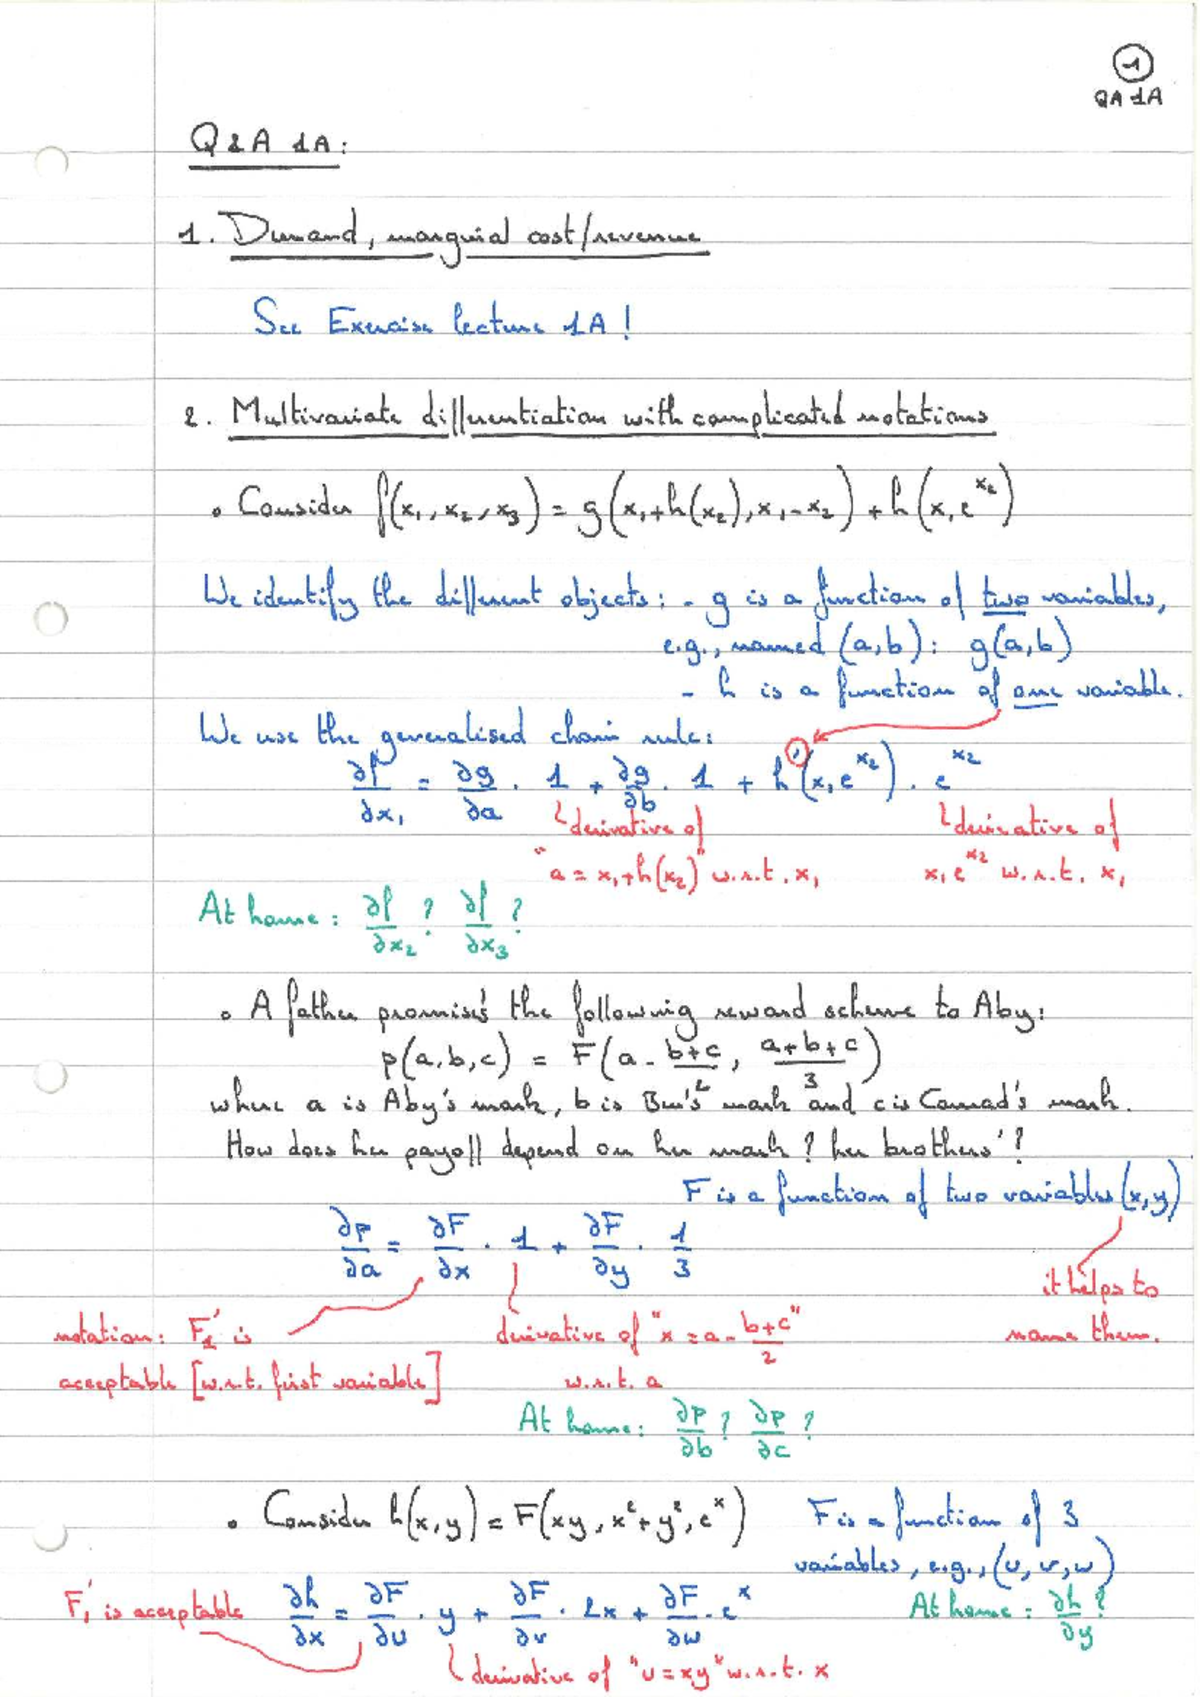 1
QA 1A
Q&A 1A:
1. Demand, marginal cost/revenue
See Exercise lecture 1A!
2. Multivariate differentiation with complicated notations
• Consider f(x₁, x₂, x₃) = g(x₁+h(x₂), x₁-x₂) + h(x₁e^x₂)
We identify the different objects: - g is a function of two variables,
e.g., named (a,b): g(a,b)
- h is a function of one variable.
We use the generalised chain rule:
∂f/∂x₁ = ∂g/∂a · 1 + ∂g/∂b · 1 + h'(x₁e^x₂) · e^x₂
derivative of derivative of
"a = x₁+h(x₂)" w.r.t. x₁ x₁e^x₂ w.r.t. x₁
At home: ∂f/∂x₂? ∂f/∂x₃?
• A father promises the following reward scheme to Aby:
p(a,b,c) = F(a - (b+c)/2, (a+b+c)/3)
where a is Aby's mark, b is Ben's mark and c is Conrad's mark.
How does her payoff depend on her mark? her brothers'?
F is a function of two variables (x,y)
∂p/∂a = ∂F/∂x · 1 + ∂F/∂y · 1/3
it helps to
notation: F₁' is derivative of "x = a - (b+c)/2" name them.
acceptable [w.r.t. first variable] w.r.t. a
At home: ∂p/∂b? ∂p/∂c?
• Consider h(x,y) = F(xy, x²+y², e^x) F is a function of 3
variables, e.g., (u, v, w)
F₁' is acceptable ∂h/∂x = ∂F/∂u · y + ∂F/∂v · 2x + ∂F/∂w · e^x At home: ∂h/∂y?
derivative of "u = xy" w.r.t. x